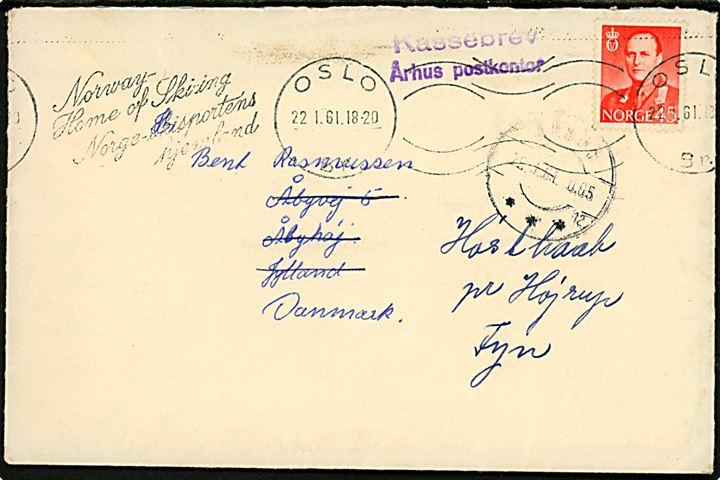 Norway-
Home of Ski-ing
Norge-skisportens
hjemland
OSLO
22.1.61.18-20
Br
Kassebrev
Århus postkontor
NORGE 45
OSLO
22.1.61.18
Br
12
Hr.
Bent Rasmussen
Åbyvej 5
Åbyhøj.
Jylland
Danmark.
pr Højrup
Fyn